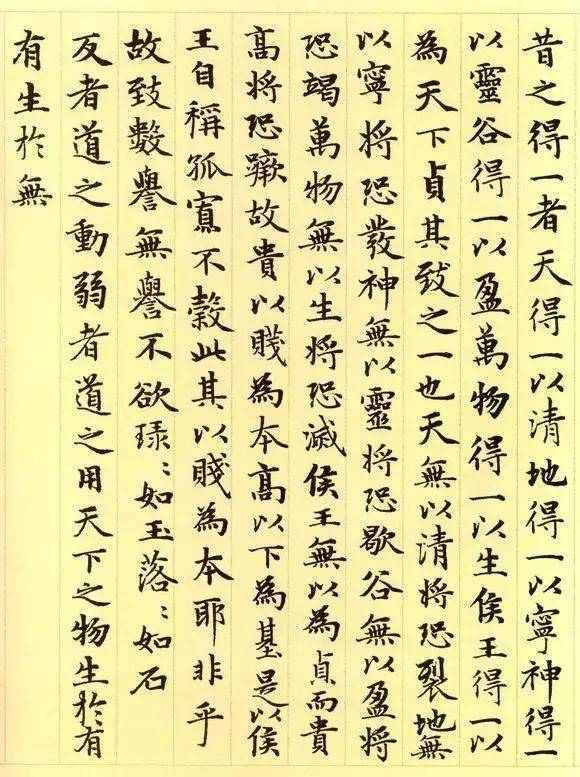 昔之得一者天得一以清地得一以寧神得一
以靈谷得一以盈萬物得一以生侯王得一以
為天下貞其致之一也天無以清將恐裂地無
以寧將恐發神無以靈將恐歇谷無以盈將
恐竭萬物無以生將恐滅侯王無以為貞而貴
高將恐蹶故貴以賤為本高以下為基是以侯
王自稱孤寡不穀此其以賤為本耶非乎
故致數譽無譽不欲琭:如玉落:如石
反者道之動弱者道之用天下之物生於有
有生於無